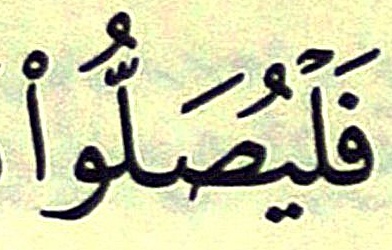 فَلْيُصَلُّوا۟